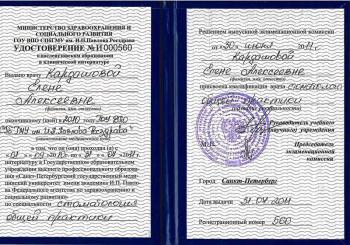 МИНИСТЕРСТВО ЗДРАВООХРАНЕНИЯ И
СОЦИАЛЬНОГО РАЗВИТИЯ
ГОУ ВПО СПбГМУ им. И.П.Павлова Росздрава
УДОСТОВЕРЕНИЕ №И000560
о послевузовском образовании
в клинической интернатуре
Выдано врачу Кардашовой
Елене
Алексеевне
окончившему (шей) в 2010 году ГОУ ВПО
в том, что он (она) проходил (а) с
интернатуру в Государственном образовательном
учреждении высшего профессионального образова-
ния «Санкт-Петербургский государственный меди-
цинский университет имени академика И.П. Павло-
ва Федерального агентства по здравоохранению и
социальному развитию»
по специальности стоматология
общей практики
Решением выпускной экзаменационной комиссии
от «30» июня 2011 г.
Кардашовой
Елене Алексеевне
присвоена квалификация врача
общей практики
Руководитель учебного
учреждения
М.П.
Председатель
экзаменационной
комиссии
Город Санкт-Петербург
Дата выдачи 31.07.2011
Регистрационный номер 560